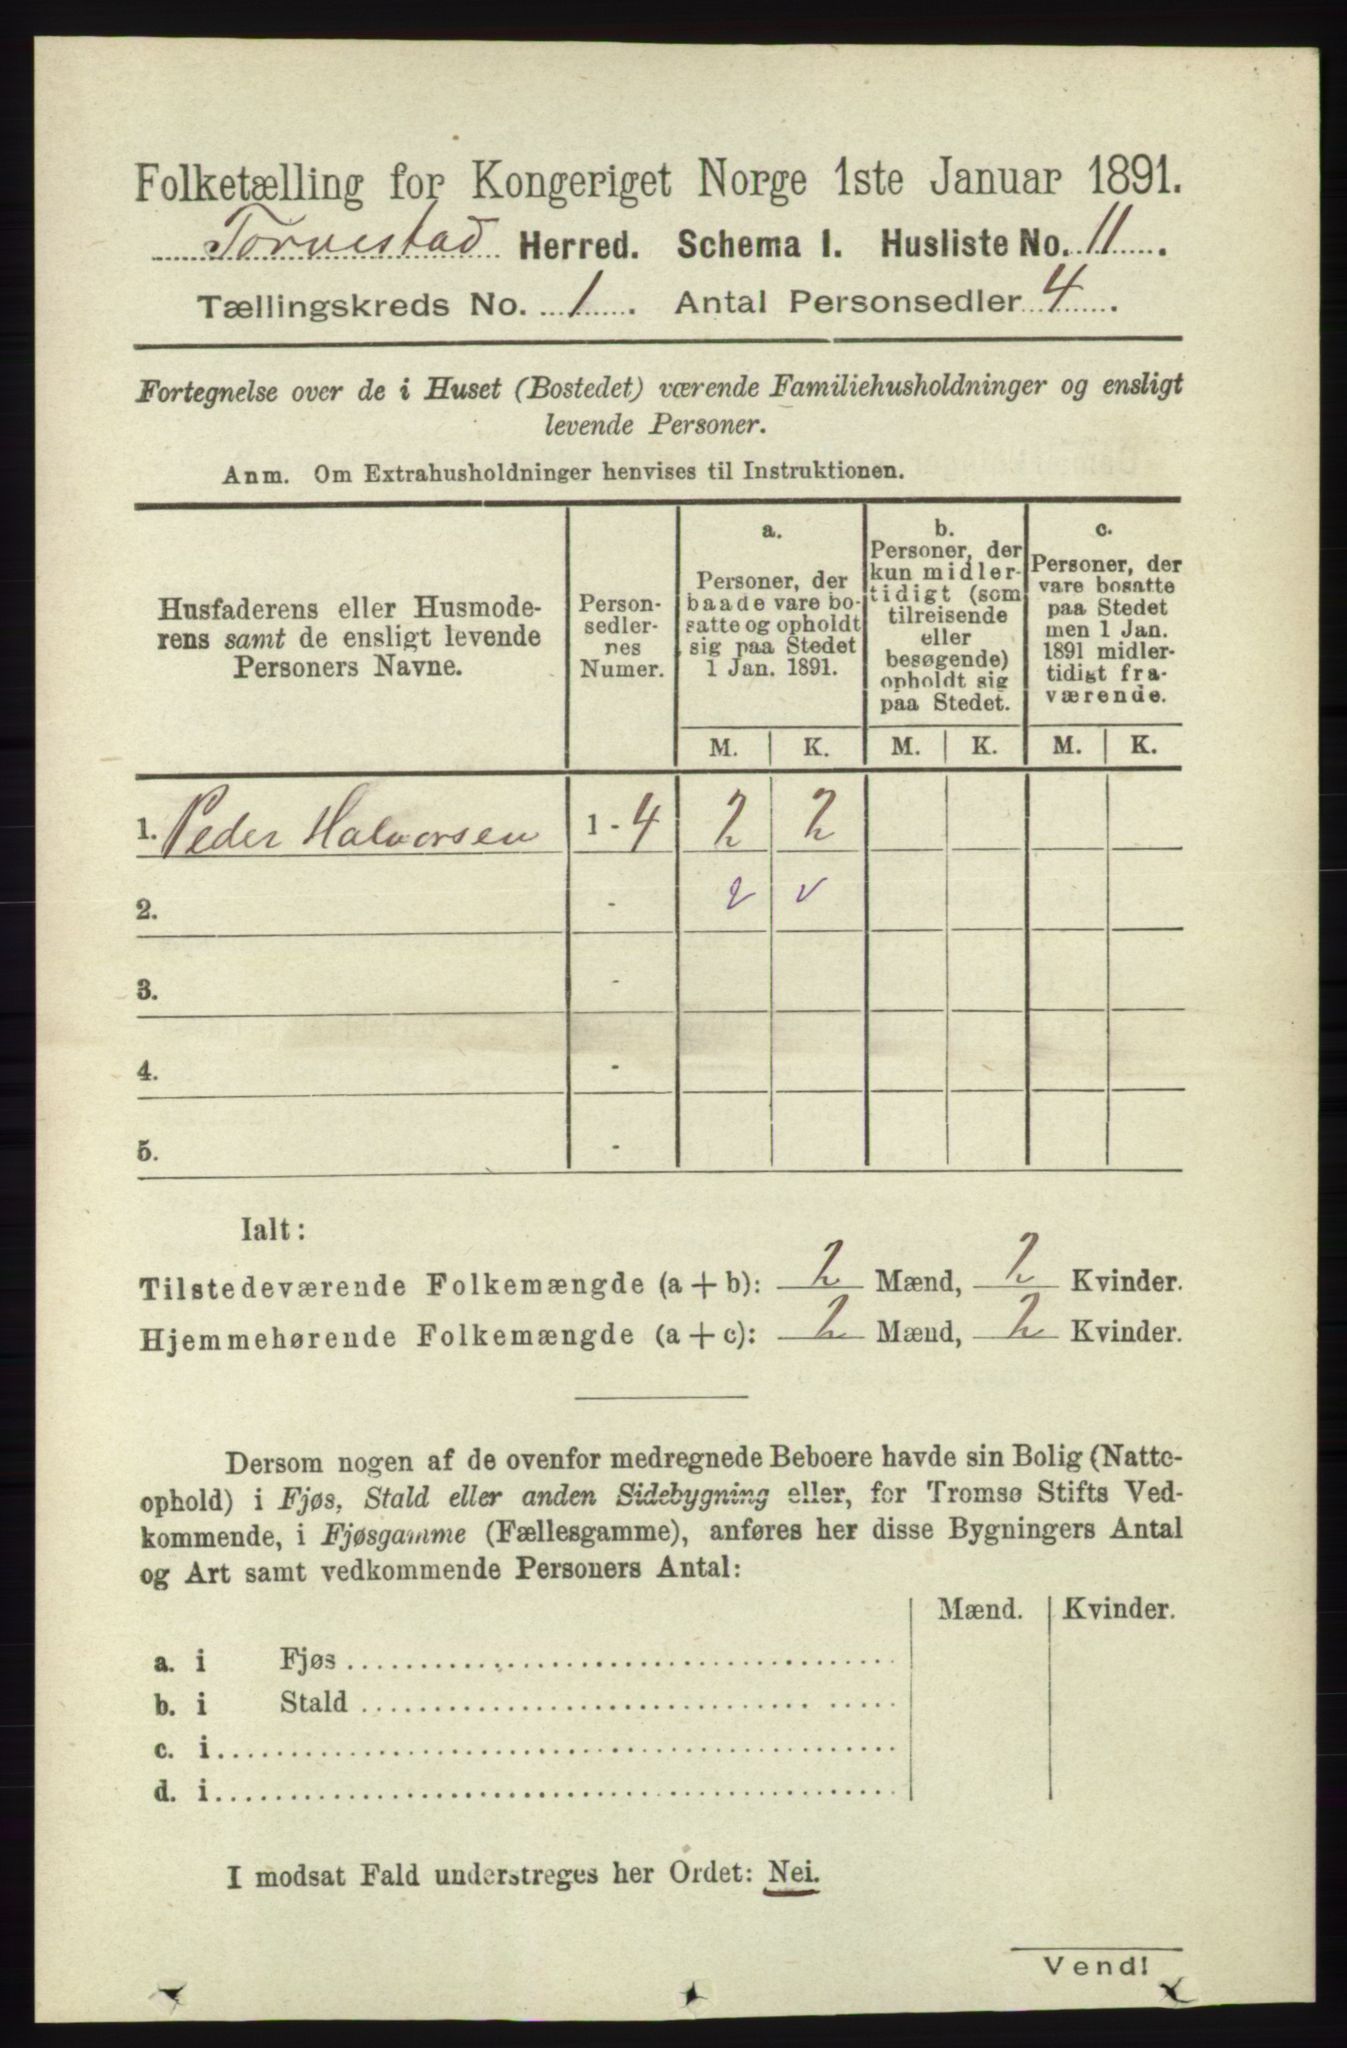 Folketælling for Kongeriget Norge 1ste Januar 1891.
Torvestad Herred. Schema I. Husliste No. 11.
Tællingskreds No. 1. Antal Personsedler 4.
Fortegnelse over de i Huset (Bostedet) værende Familiehusholdninger og ensligt
levende Personer.
Anm. Om Extrahusholdninger henvises til Instruktionen.
Husfaderens eller Husmode-
rens samt de ensligt levende
Personers Navne.
Person-
sedler-
nes
Numer.
a.
Personer, der
baade vare bo-
satte og opholdt
sig paa Stedet
1 Jan. 1891.
b.
Personer, der
kun midler-
tidigt (som
tilreisende
eller
besøgende)
opholdt sig
paa Stedet.
c.
Personer, der
vare bosatte
paa Stedet
men 1 Jan.
1891 midler-
tidigt fra-
værende.
M. K. M. K. M. K.
1. Peder Halvorsen 1 - 4 2 2
2. - 2 v
3. -
4. -
5. -
Ialt:
Tilstedeværende Folkemængde (a + b): 2 Mænd, 2 Kvinder.
Hjemmehørende Folkemængde (a + c): 2 Mænd, 2 Kvinder.
Dersom nogen af de ovenfor medregnede Beboere havde sin Bolig (Natte-
ophold) i Fjøs, Stald eller anden Sidebygning eller, for Tromsø Stifts Ved-
kommende, i Fjøsgamme (Fællesgamme), anføres her disse Bygningers Antal
og Art samt vedkommende Personers Antal:
Mænd. Kvinder.
a. i Fjøs
b. i Stald
c. i
d. i
I modsat Fald understreges her Ordet: Nei.
Vend!